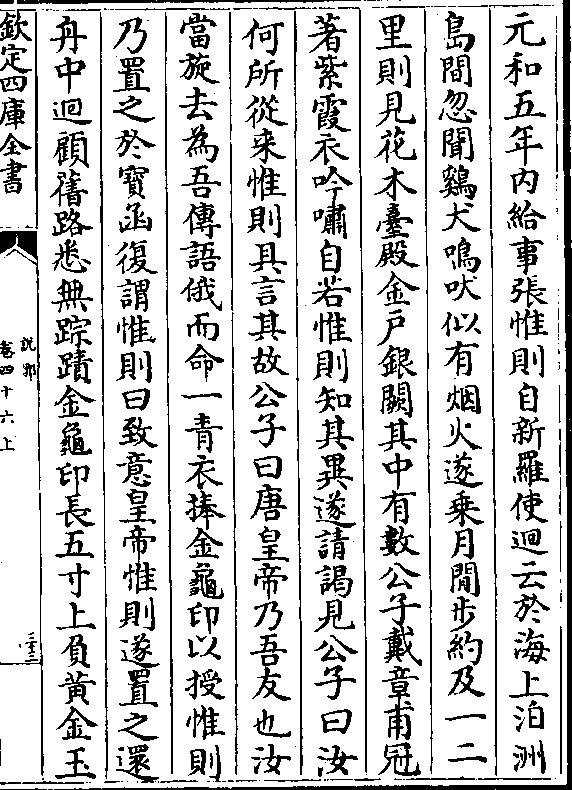 元和五年內給事張惟則自新羅使迴云於海上泊洲
島間忽聞鷄犬鳴吠似有烟火遂乗月閒步約及一二
里則見花木臺殿金戶銀闕其中有數公子戴章甫冠
著紫霞衣吟嘯自若惟則知其異遂請謁見公子曰汝
何所從来惟則具言其故公子曰唐皇帝乃吾友也汝
當旋去為吾傳語俄而命一青衣捧金龜印以授惟則
乃置之於寶函復謂惟則曰致意皇帝惟則遂置之還
舟中迴顧舊路悉無踪蹟金龜印長五寸上負黄金玉
欽定四庫全書
說郛
卷四十六上
三十三